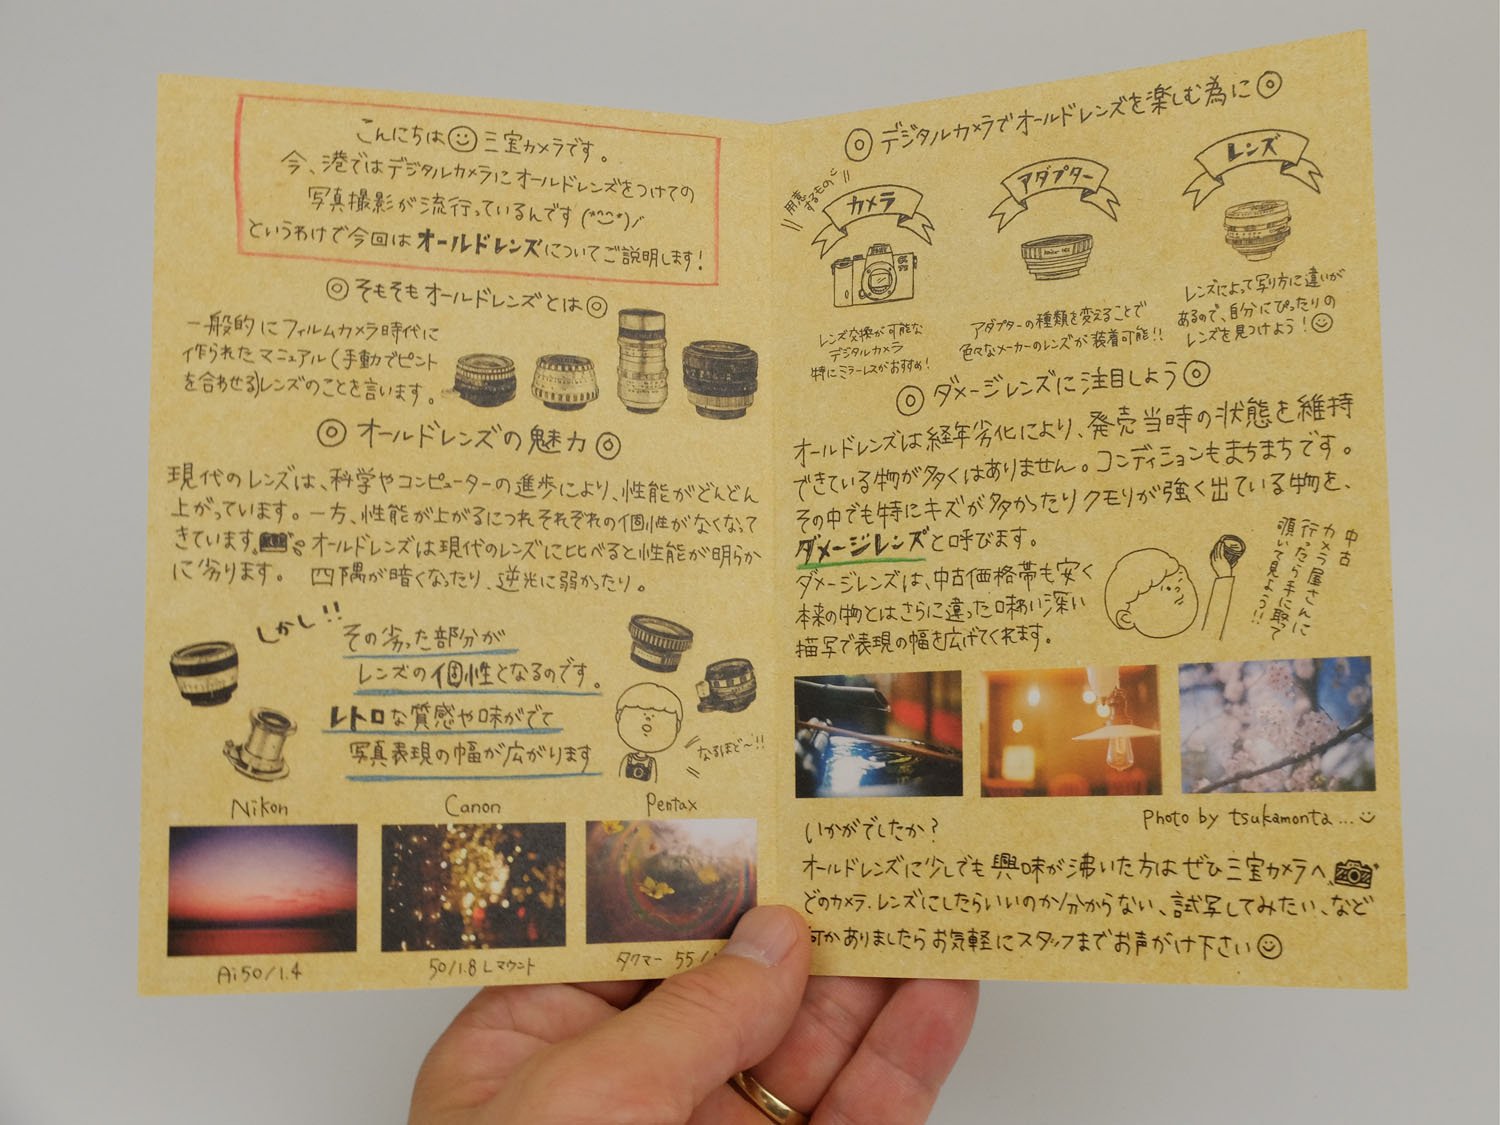 こんにちは 三宝カメラです。
今、港ではデジタルカメラにオールドレンズをつけての
写真撮影が流行っているんです(*^^*)/
というわけで今回はオールドレンズについてご説明します!
◎そもそもオールドレンズとは◎
一般的にフィルムカメラ時代に
作られたマニュアル(手動でピント
を合わせる)レンズのことを言います。
◎オールドレンズの魅力◎
現代のレンズは、科学やコンピューターの進歩により、性能がどんどん
上がっています。一方、性能が上がるにつれそれぞれの個性がなくなって
きています。オールドレンズは現代のレンズに比べると性能が明らか
に劣ります。 四隅が暗くなったり、逆光に弱かったり。
しかし!!
その劣った部分が
レンズの個性となるのです。
レトロな質感や味がでて
写真表現の幅が広がります
なるほど〜!!
Nikon
Canon
Pentax
Ai50/1.4
50/1.8 Lマウント
タクマー 55/
◎デジタルカメラでオールドレンズを楽しむ為に◎
用意
するもの
カメラ
アダプター
レンズ
レンズ交換が可能な
デジタルカメラ
特にミラーレスがおすすめ!
アダプターの種類を変えることで
色々なメーカーのレンズが装着可能!!
レンズによって写り方に違いが
あるので、自分にぴったりの
レンズを見つけよう!
◎ダメージレンズに注目しよう◎
オールドレンズは経年劣化により、発売当時の状態を維持
できている物が多くはありません。コンディションもまちまちです。
その中でも特にキズが多かったりクモリが強く出ている物を、
ダメージレンズと呼びます。
ダメージレンズは、中古価格帯も安く
本来の物とはさらに違った味わい深い
描写で表現の幅を広げてくれます。
中古
カメラ屋さんに
行ったら手に取って
覗いて見よう!!
Photo by tsukamonta...
いかがでしたか?
オールドレンズに少しでも興味が沸いた方はぜひ三宝カメラへ
どのカメラ、レンズにしたらいいのか分からない、試写してみたい、など
何かありましたらお気軽にスタッフまでお声がけ下さい